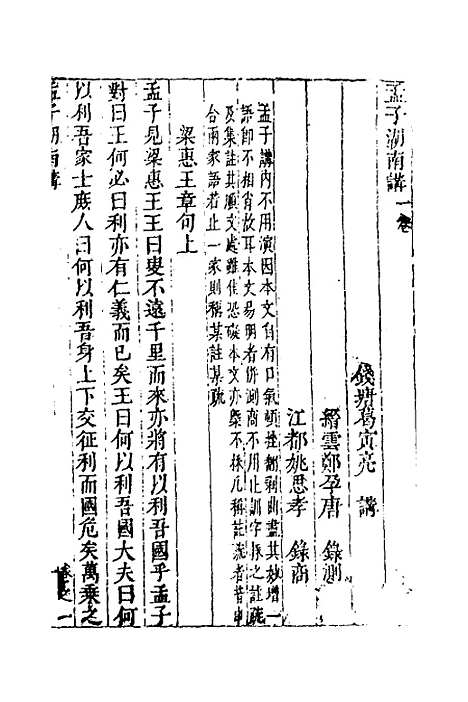 孟子湖南講一卷
錢塘葛寅亮 講
縉雲鄭孕唐 錄測
江都姚思孝 錄商
孟子講內不用演因本文自有口氣頓挫翻剥曲盡其妙增一
語即不相肖故耳本文易明者併測商不用止訓字採之註疏
及集註其順文處雖佳恐礙本文亦槩不採凡稱註疏者皆串
合兩家語若止一家則稱某註某疏
梁惠王章句上
孟子見梁惠王王曰叟不遠千里而來亦將有以利吾國乎孟子
對曰王何必曰利亦有仁義而已矣王曰何以利吾國大夫曰何
以利吾家士庶人曰何以利吾身上下交征利而國危矣萬乘之
孟子湖南講 卷之一